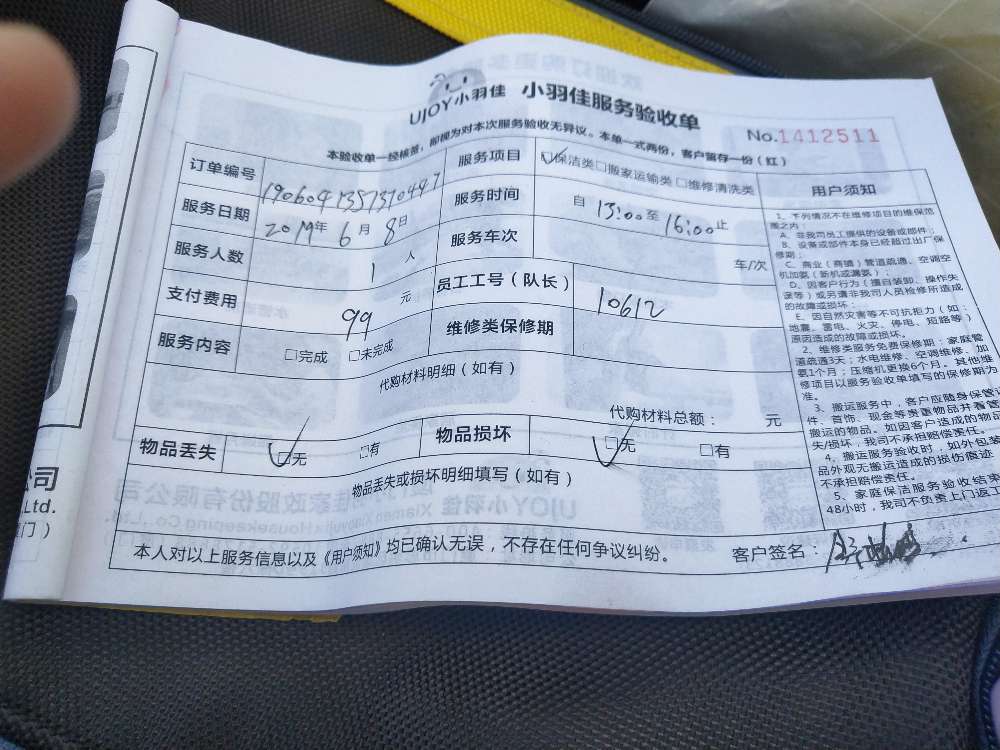 UJOY小羽佳 小羽佳服务验收单
No.1412511
本验收单一经核签，即视为对本次服务验收无异议。本单一式两份，客户留存一份（红）
订单编号 服务项目 ☑保洁类□搬家运输类 □维修清洗类
服务日期 2019年 6 月 8 日 服务时间 自 13:00 至 16:00 止
服务人数 1 人 服务车次 车/次
支付费用 99 元 员工工号（队长） 10612
服务内容 □完成 □未完成 维修类保修期
代购材料明细（如有）
代购材料总额： 元
物品丢失 ☑无 □有 物品损坏 ☑无 □有
物品丢失或损坏明细填写（如有）
本人对以上服务信息以及《用户须知》均已确认无误，不存在任何争议纠纷。 客户签名：
用户须知
1、下列情况不在维修项目的维保范
围之内
A、非我司员工提供的设备或部件；
B、设备或部件本身已经超过出厂保
修期；
C、商业（商铺）管道疏通、空调空
机加氨（新机或漏氨）；
D、因客户行为（擅自装卸、操作失
误等）或另请非我司人员检修所造成
的故障或损坏；
E、因自然灾害等不可抗拒力（如：
地震、雷电、火灾、停电、短路等）
原因造成的故障或损坏。
2、维修类服务免费保修期：家庭管
道疏通3天；水电维修、空调维修、加
氨1个月；压缩机更换6个月。其他维
修项目以服务验收单填写的保修期为
准。
3、搬运服务中，客户应随身保管证
件、首饰、现金等贵重物品并看管
搬运的物品。如因客户造成的物品
失/损坏，我司不承担赔偿责任。
4、搬运服务验收时，如外包装
品外观无搬运造成的损伤痕迹
不承担赔偿责任。
5、家庭保洁服务验收结束
48小时，我司不负责上门返工
公司
Ltd.
门）